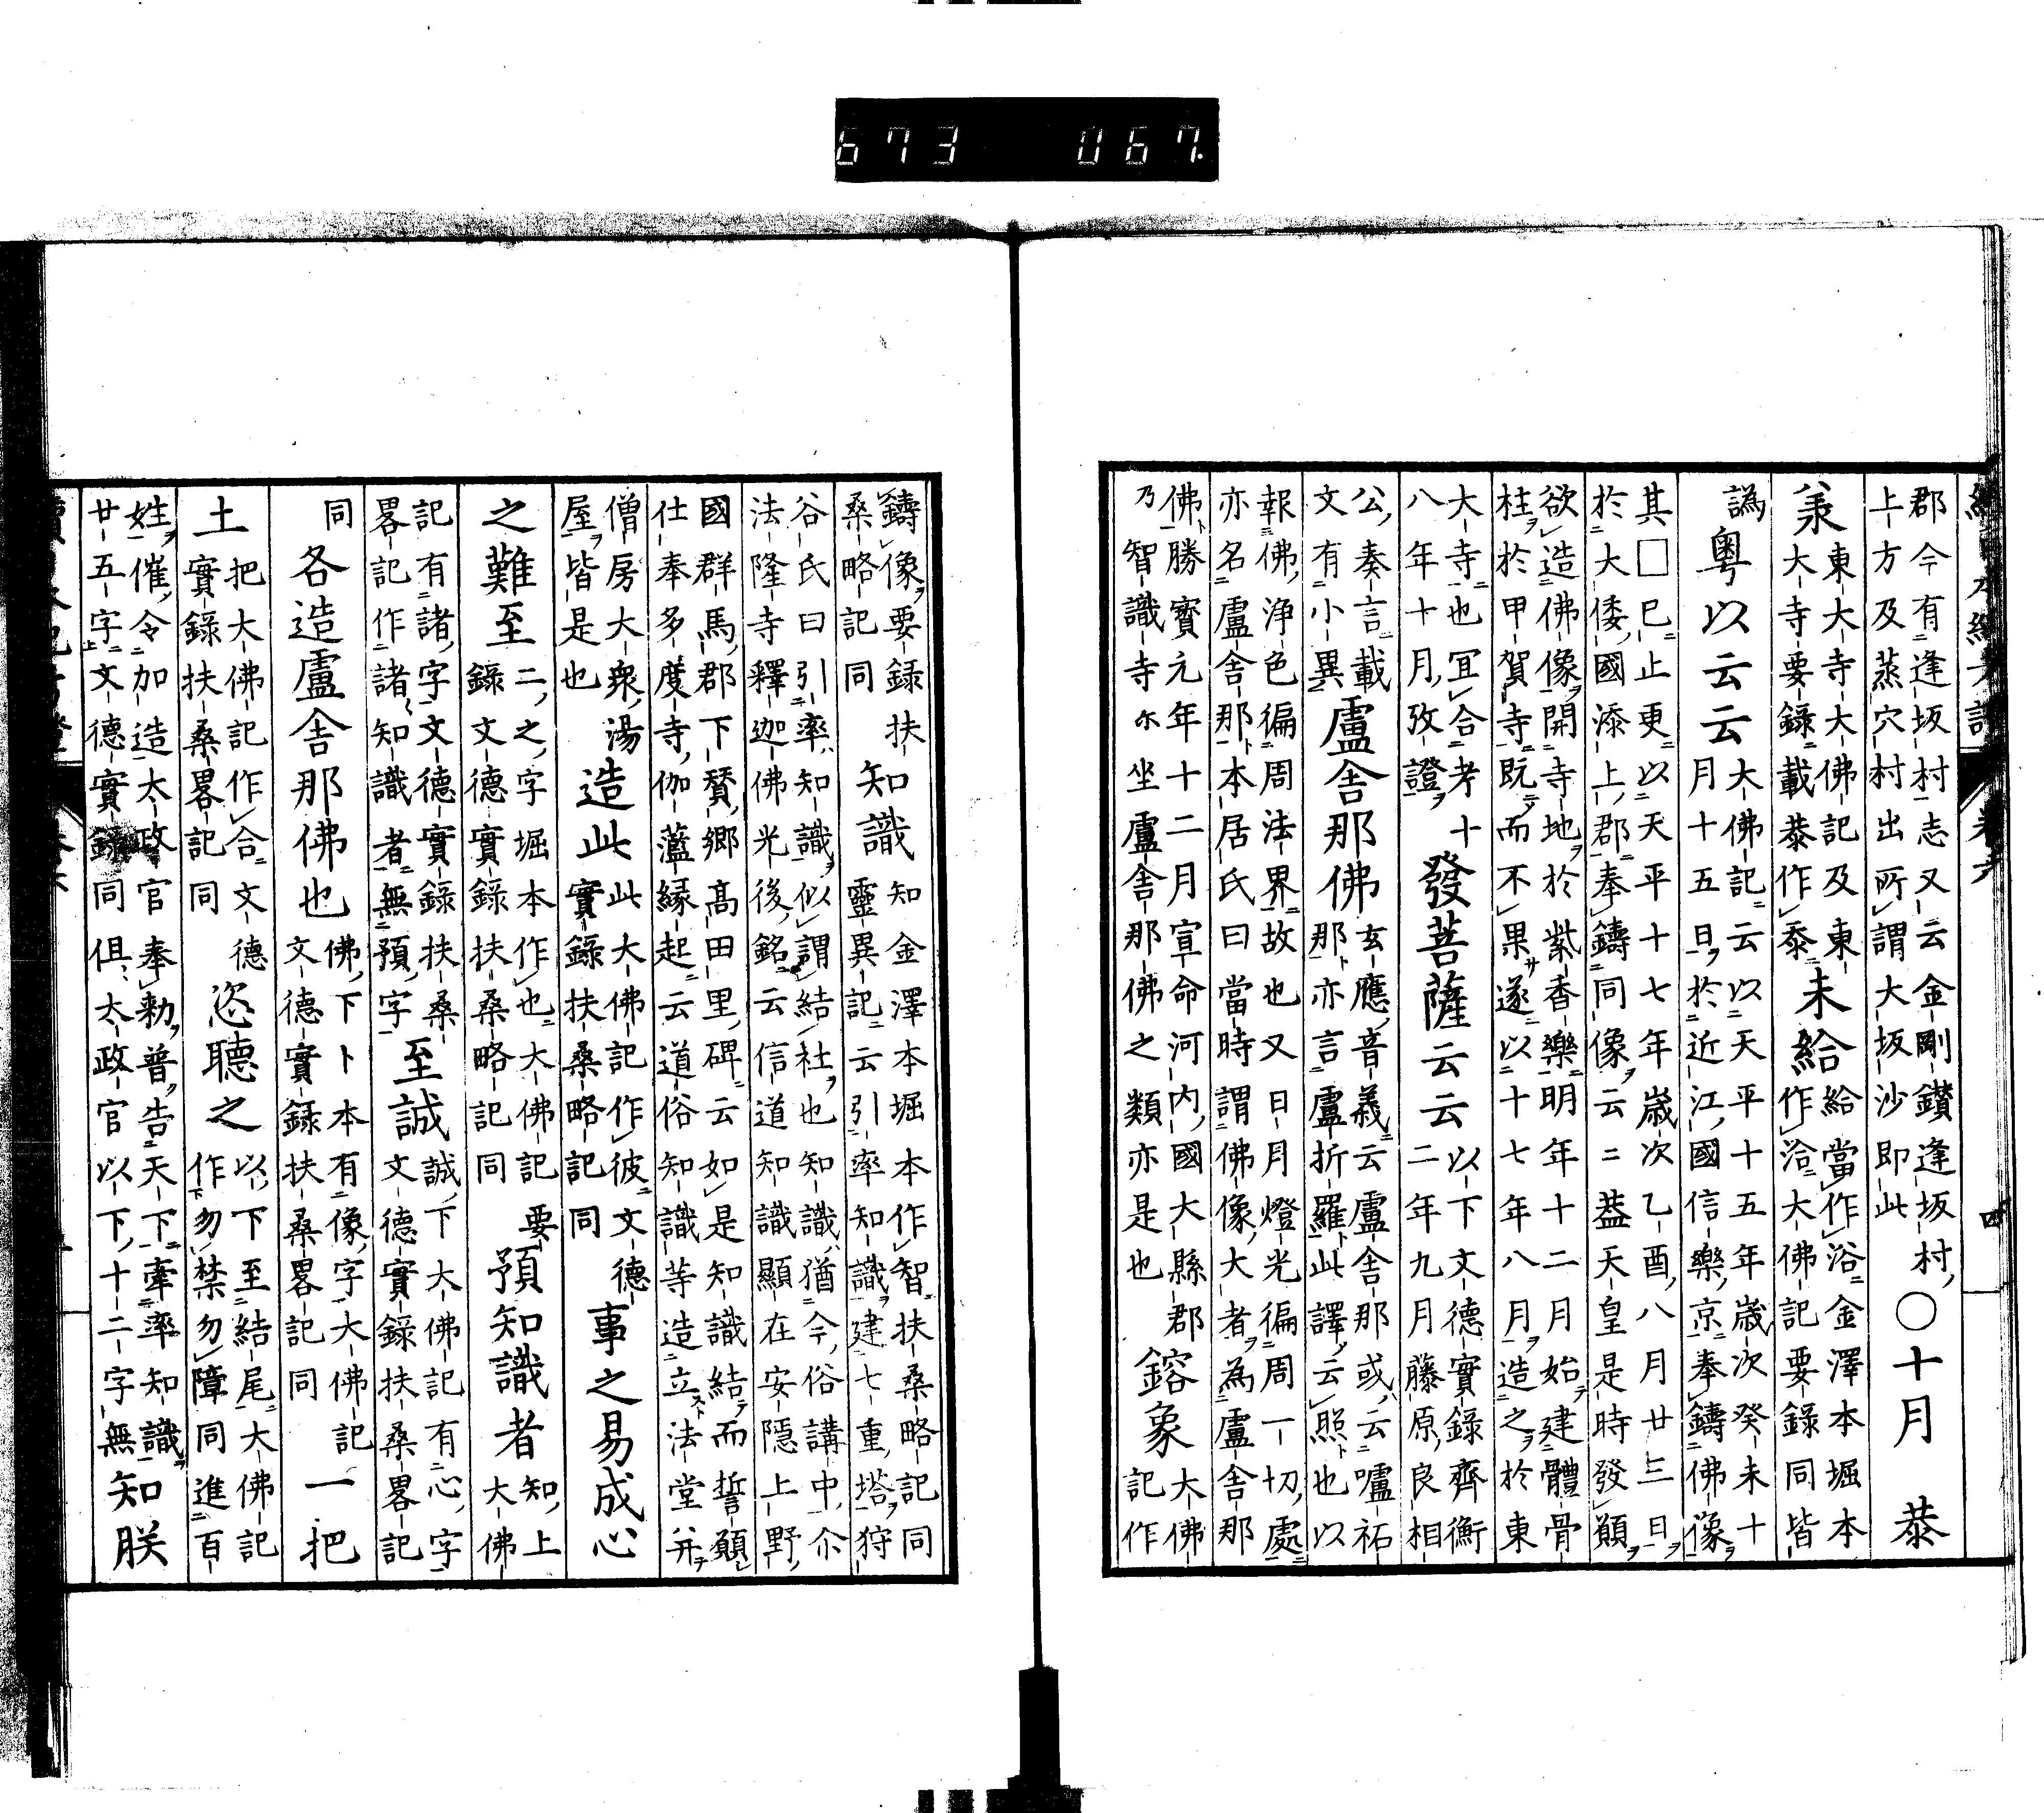 673 067
郡今有逢坂村志又云金剛鑚逢坂村
上方及蒸穴村出所謂大坂沙即此
〇十月 恭
兼
東大寺大佛記及東
大寺要錄載恭作忝
未給
給當作浴金澤本堀本
作洽大佛記要錄同皆
譌
粤以云云
大佛記云以天平十五年歳次癸未十
月十五日於近江國信樂京奉鑄佛像
其□巳止更以天平十七年歳次乙酉八月廿三日
於大倭國添上郡奉鑄同像云ニ葢天皇是時發願
欲造佛像開寺地於紫香樂明年十二月始建體骨
柱於甲賀寺既而不果遂以十七年八月造之於東
大寺也冝合考十
八年十月攷證
發菩薩云云
以下文德實錄齊衡
二年九月藤原良相
公奏言載
文有小異
盧舎那佛
玄應音義云盧舎那或云嚧祏
那亦言盧折羅此譯云照也以
報佛浄色徧周法界故也又日月燈光徧周一切處
亦名盧舎那本居氏曰當時謂佛像大者為盧舎那
佛勝寳元年十二月宣命河内國大縣郡
乃智識寺尓坐盧舎那佛之類亦是也
鎔象
大佛
記作
鑄像要録扶
桑略記同
知識
知金澤本堀本作智扶桑略記同
靈異記云引率知識建七重塔狩
谷氏曰引率知識似謂結杜也知識猶今俗講中尒
法隆寺釋迦佛光後銘云信道知識顯在安隱上野
國群馬郡下賛郷髙田里碑云如是知識結而誓願
仕奉多度寺伽藍縁起云道俗知識等造立法堂并
僧房大衆湯
屋皆是也
造此
此大佛記作彼文德
實錄扶桑略記同
事之易成心
之難至
二之字堀本作也大佛記要
錄文德實錄扶桑略記同
預知識者
知上
大佛
記有諸字文德實錄扶桑
畧記作諸知識者無預字
至誠
誠下大佛記有心字
文德實錄扶桑畧記
同
各造盧舎那佛也
佛下卜本有像字大佛記
文德實録扶桑畧記同
一把
土
把大佛記作合文德
實錄扶桑畧記同
恣聽之
以下至結尾大佛記
作勿禁勿障同進百
姓催令加造太政官奉勅普告天下牽率知識
廿五字文德實錄同但太政官以下十二字無
知朕